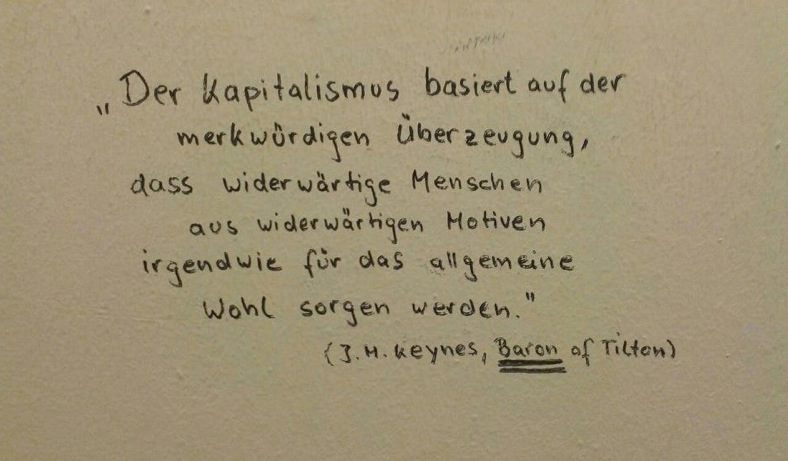 „Der Kapitalismus basiert auf der
merkwürdigen Überzeugung,
dass widerwärtige Menschen
aus widerwärtigen Motiven
irgendwie für das allgemeine
Wohl sorgen werden."
(J. M. Keynes, Baron of Tilton)